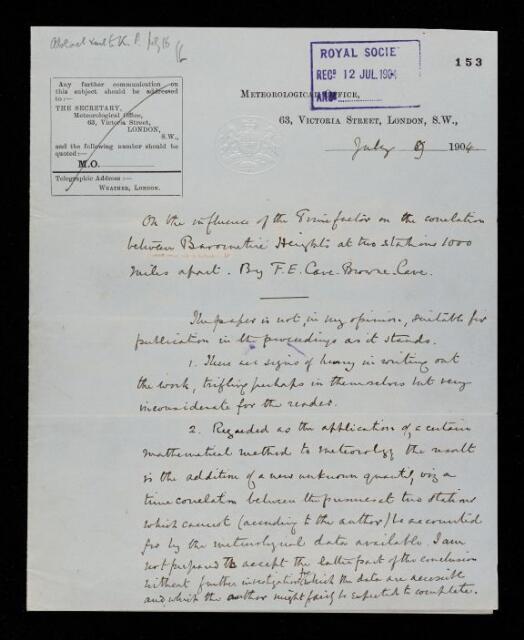 Abstract sent to K. P. July 16
ROYAL SOCIE
REC? 12 JUL.1904
153
Any further communication on
this subject should be addressed
to:—
THE SECRETARY,
Meteorological Office,
63, Victoria Street,
LONDON,
S.W.,
and the following number should be
quoted:—
M.O.
Telegraphic Address :—
WEATHER, LONDON.
METEOROLOGICAL OFFICE,
63, VICTORIA STREET, LONDON, S.W.,
July 9 1904
On the influence of the Time factor on the correlation
between Barometric Heights at two stations 1000
miles apart. By F. E. Cave-Browne-Cave.
The paper is not, in my opinion, suitable for
publication in the proceedings as it stands.
1. There are signs of hurry in writing out
the work, trifling perhaps in themselves but very
inconsiderate for the reader.
2. Regarded as the application of a certain
mathematical method to meteorology the result
is the addition of a new unknown quantity, viz a
time correlation between the pressures at two stations
which cannot (according to the author) be accounted
for by the meteorological data available. I am
not prepared to accept the latter part of the conclusion
without further investigation for which the data are accessible
and which the author might fairly be expected to complete.